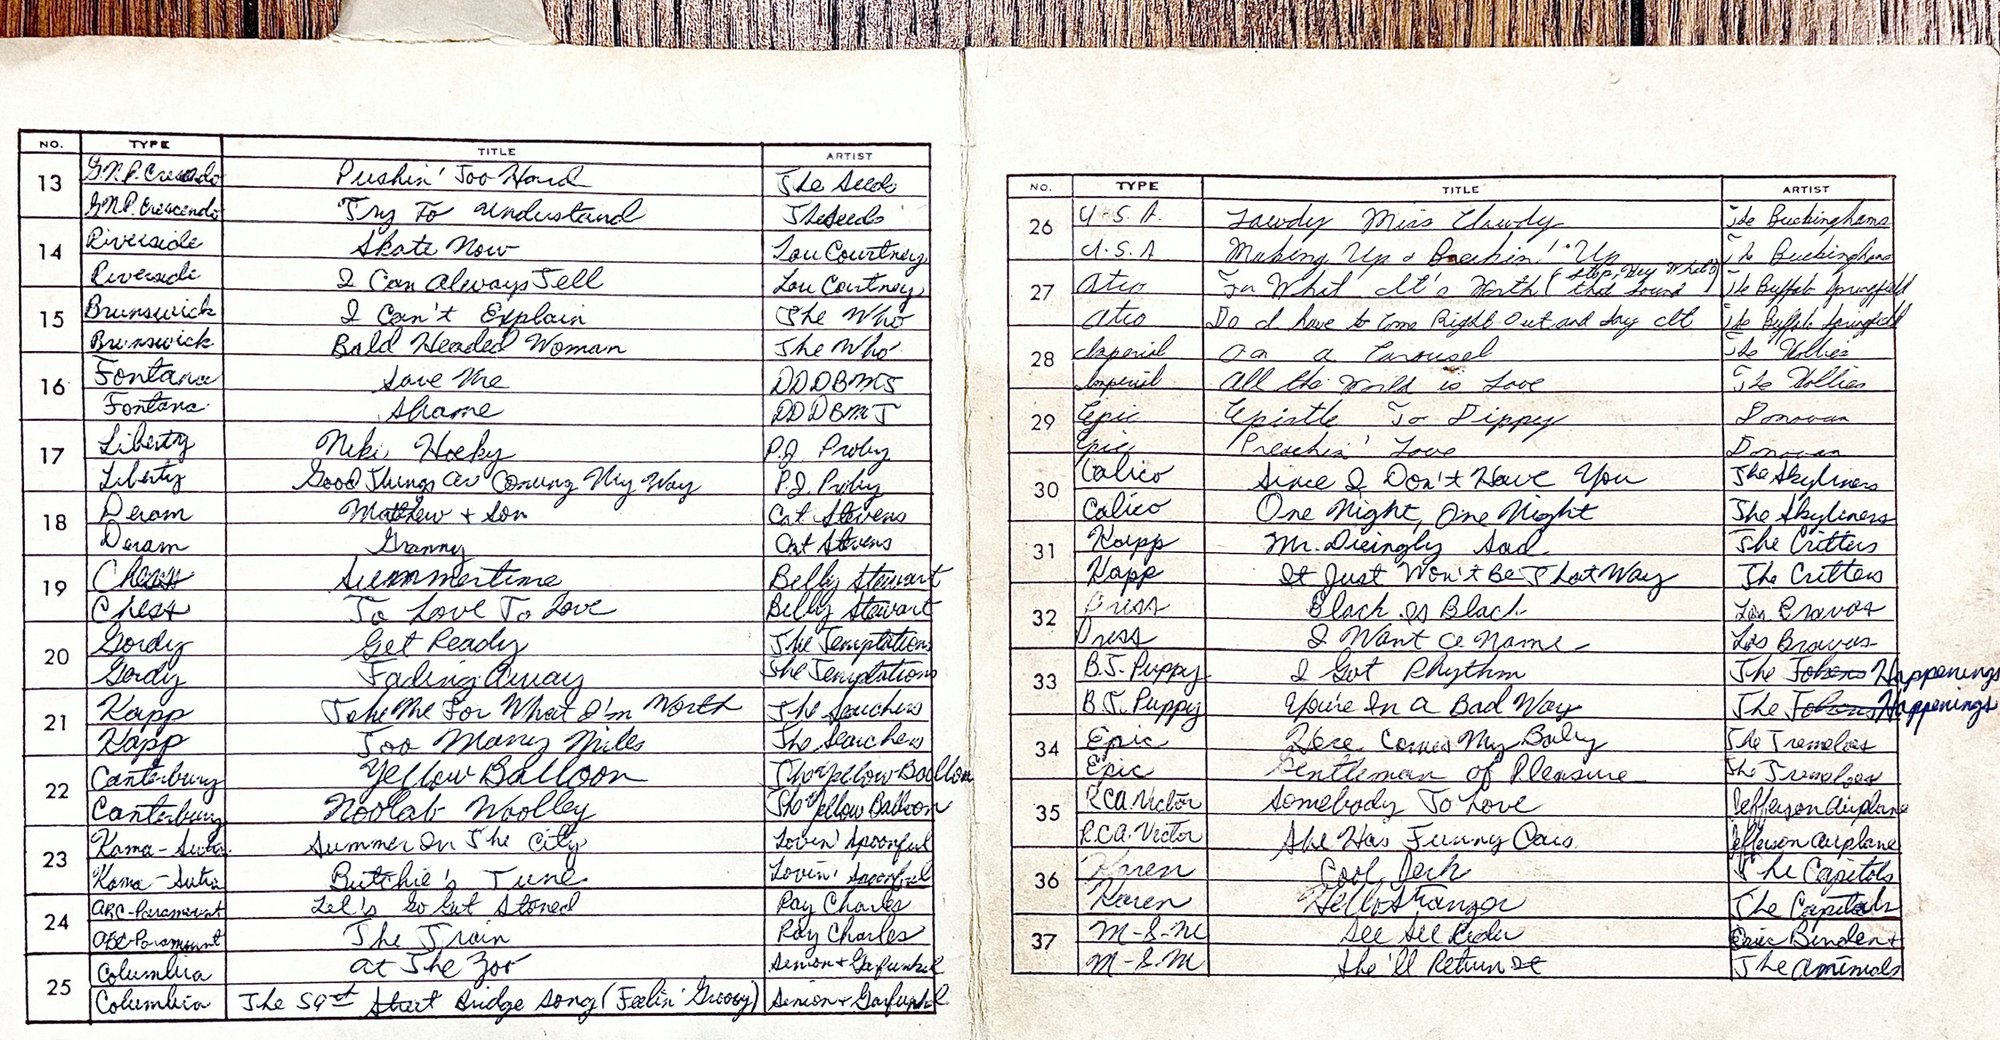 NO. TYPE TITLE ARTIST
13 G.N.P. Crescendo Pushin' Too Hard The Seeds
G.N.P. Crescendo Try To Understand The Seeds
14 Riverside Skate Now Lou Courtney
Riverside I Can Always Tell Lou Courtney
15 Brunswick I Can't Explain The Who
Brunswick Bald Headed Woman The Who
16 Fontana Save Me DDDBMT
Fontana Shame DDDBMT
17 Liberty Niki Hoeky P.J. Proby
Liberty Good Things are Coming My Way P.J. Proby
18 Deram Matthew + Son Cat Stevens
Deram Granny Cat Stevens
19 Chess Summertime Billy Stewart
Chess To Love To Love Billy Stewart
20 Gordy Get Ready The Temptations
Gordy Fading Away The Temptations
21 Kapp Take Me For What I'm Worth The Searchers
Kapp Too Many Miles The Searchers
22 Canterbury Yellow Balloon The Yellow Balloon
Canterbury Noolab Woolley The Yellow Balloon
23 Kama-Sutra Summer In The City Lovin' Spoonful
Kama-Sutra Butchie's Tune Lovin' Spoonful
24 ABC-Paramount Let's Go Get Stoned Ray Charles
ABC-Paramount The Train Ray Charles
25 Columbia At The Zoo Simon + Garfunkel
Columbia The 59th Street Bridge Song (Feelin' Groovy) Simon + Garfunkel
NO. TYPE TITLE ARTIST
26 U.S.A. Lawdy Miss Clawdy The Buckinghams
U.S.A Making Up + Breakin' Up The Buckinghams
27 Atco For What It's Worth (Stop, Hey What's that Sound) The Buffalo Springfield
Atco Do I have to Come Right Out and Say It The Buffalo Springfield
28 Imperial On a Carousel The Hollies
Imperial All the World is Love The Hollies
29 Epic Epistle To Dippy Donovan
Epic Preachin' Love Donovan
30 Calico Since I Don't Have You The Skyliners
Calico One Night, One Night The Skyliners
31 Kapp Mr. Dieingly Sad The Critters
Kapp It Just Won't Be That Way The Critters
32 Press Black Is Black Los Bravos
Press I Want a Name Los Bravos
33 B.T. Puppy I Got Rhythm The Tokens Happenings
B.T. Puppy You're In a Bad Way The Tokens Happenings
34 Epic Here Comes My Baby The Tremeloes
Epic Gentleman of Pleasure The Tremeloes
35 RCA Victor Somebody To Love Jefferson Airplane
R.C.A. Victor She Has Funny Cars Jefferson Airplane
36 Karen Cool Jerk The Capitols
Karen Hello Stranger The Capitols
37 M-G-M See See Rider Eric Burden +
M-G-M She'll Return It The Animals